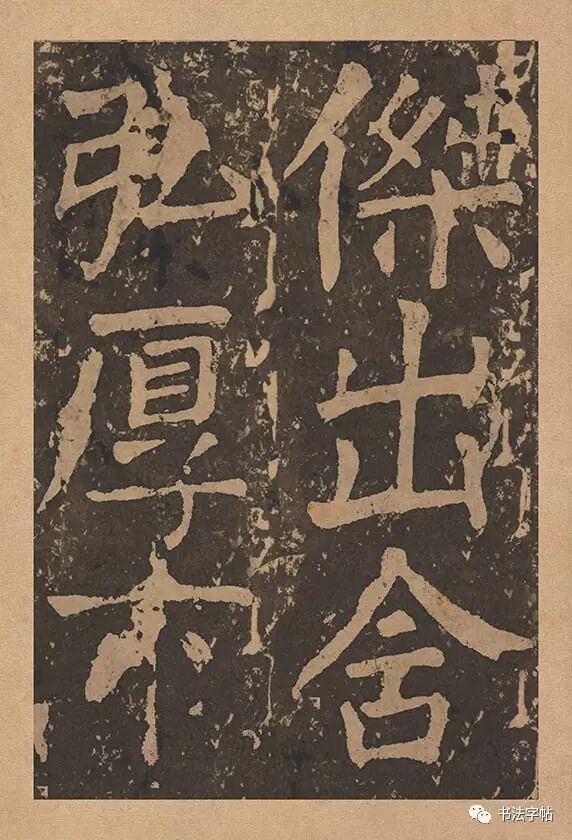 傑出含
弘厚木
书法字帖